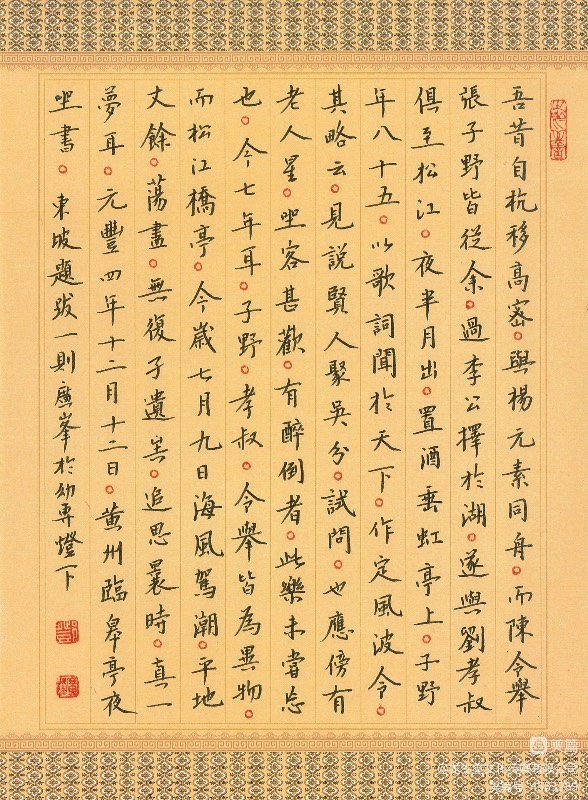 吾昔自杭移高密。與楊元素同舟。而陳令舉
張子野皆從余。過李公擇於湖。遂與劉孝叔
俱至松江。夜半月出。置酒垂虹亭上。子野
年八十五。以歌詞聞於天下。作定風波令。
其略云。見說賢人聚吳分。試問。也應傍有
老人星。坐客甚歡。有醉倒者。此樂未嘗忘
也。今七年耳。子野。孝叔。令舉皆為異物。
而松江橋亭。今歲七月九日海風駕潮。平地
丈餘。蕩盡。無復子遺矣。追思曩時。真一
夢耳。元豐四年十二月十二日。黃州臨皋亭夜
坐書。東坡題跋一則 廣峯於幼專燈下